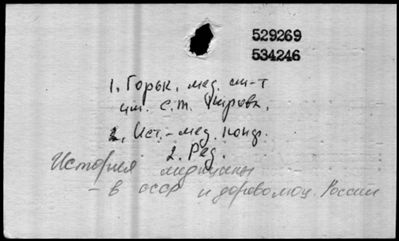 529269
534246
1. Горьк. мед. ин-т
им. С.М. Кирова.
2. Ист.-мед. конф.
2. Ред.
История медицины
- в СССР и дореволюц. России